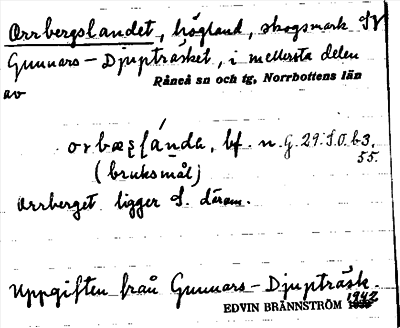 Orrbergslandet, högland, skogsmark SV
Gunnars-Djupträsket, i mellersta delen
av
Råneå sn och tg, Norrbottens län
bf. n. G. 29. S.O. b3.
55.
(bruksmål)
Orrberget ligger S. därom.
Uppgiften från Gunnars-Djupträsk.
EDVIN BRÄNNSTRÖM 1942